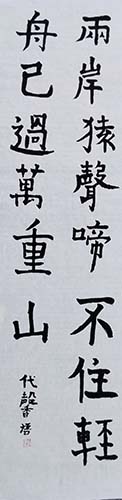 兩岸猿聲啼不住輕
舟已過萬重山
代馨悟